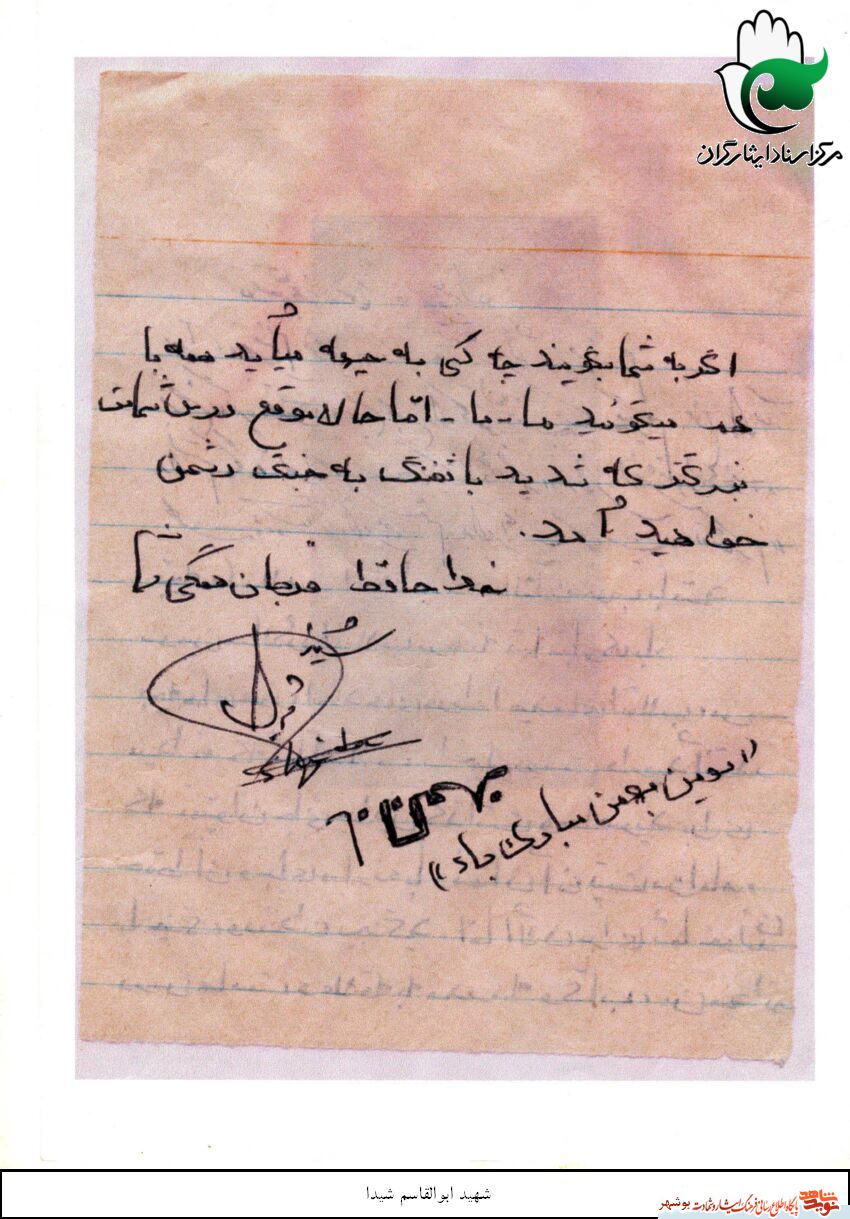 مرکز اسناد ایثارگران
اگر به شما بگویند چه کسی به جبهه میآید همه با
هم میگوئید ما - ما - امّا حالا موقع درس شماست
بزرگتر که شدید با تفنگ به جنگ دشمن
خواهید آمد.
خدا حافظ قربان همگی شما
شیدا
بهمن ۶۰
((دومین بهمن مبارک باد))
شهید ابوالقاسم شیدا
نوید شاهد
پایگاه اطلاع رسانی فرهنگ ایثار و شهادت بوشهر